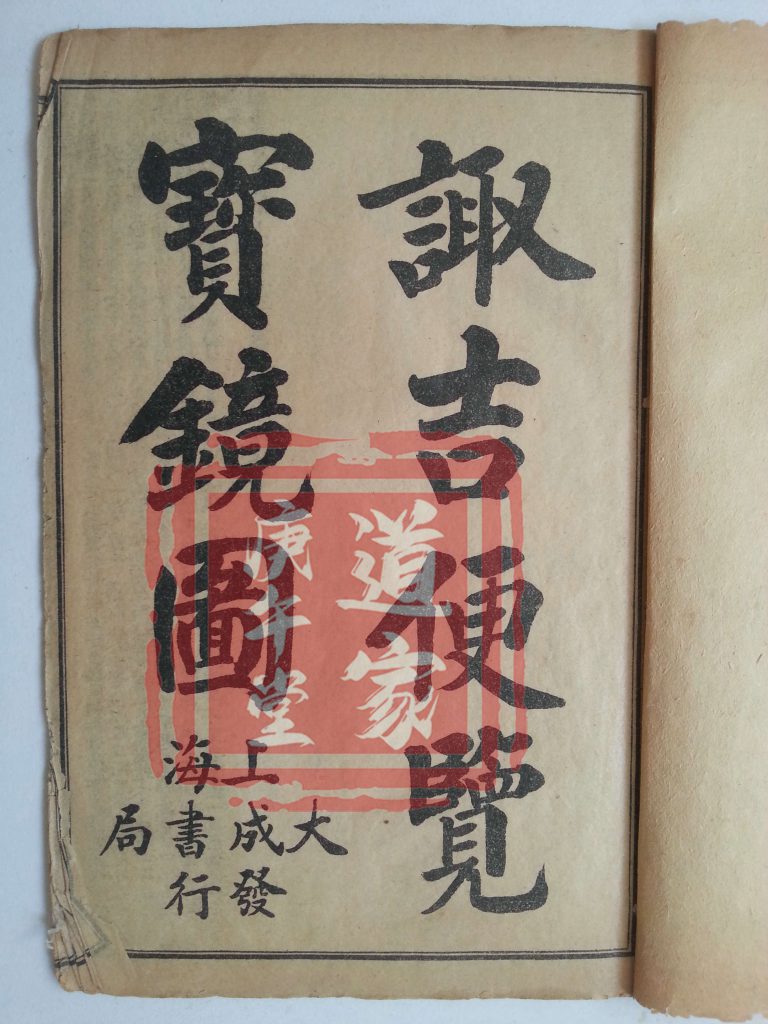 諏吉便覽
寶鏡圖
上海
大成書局
發行
道家
庚午堂